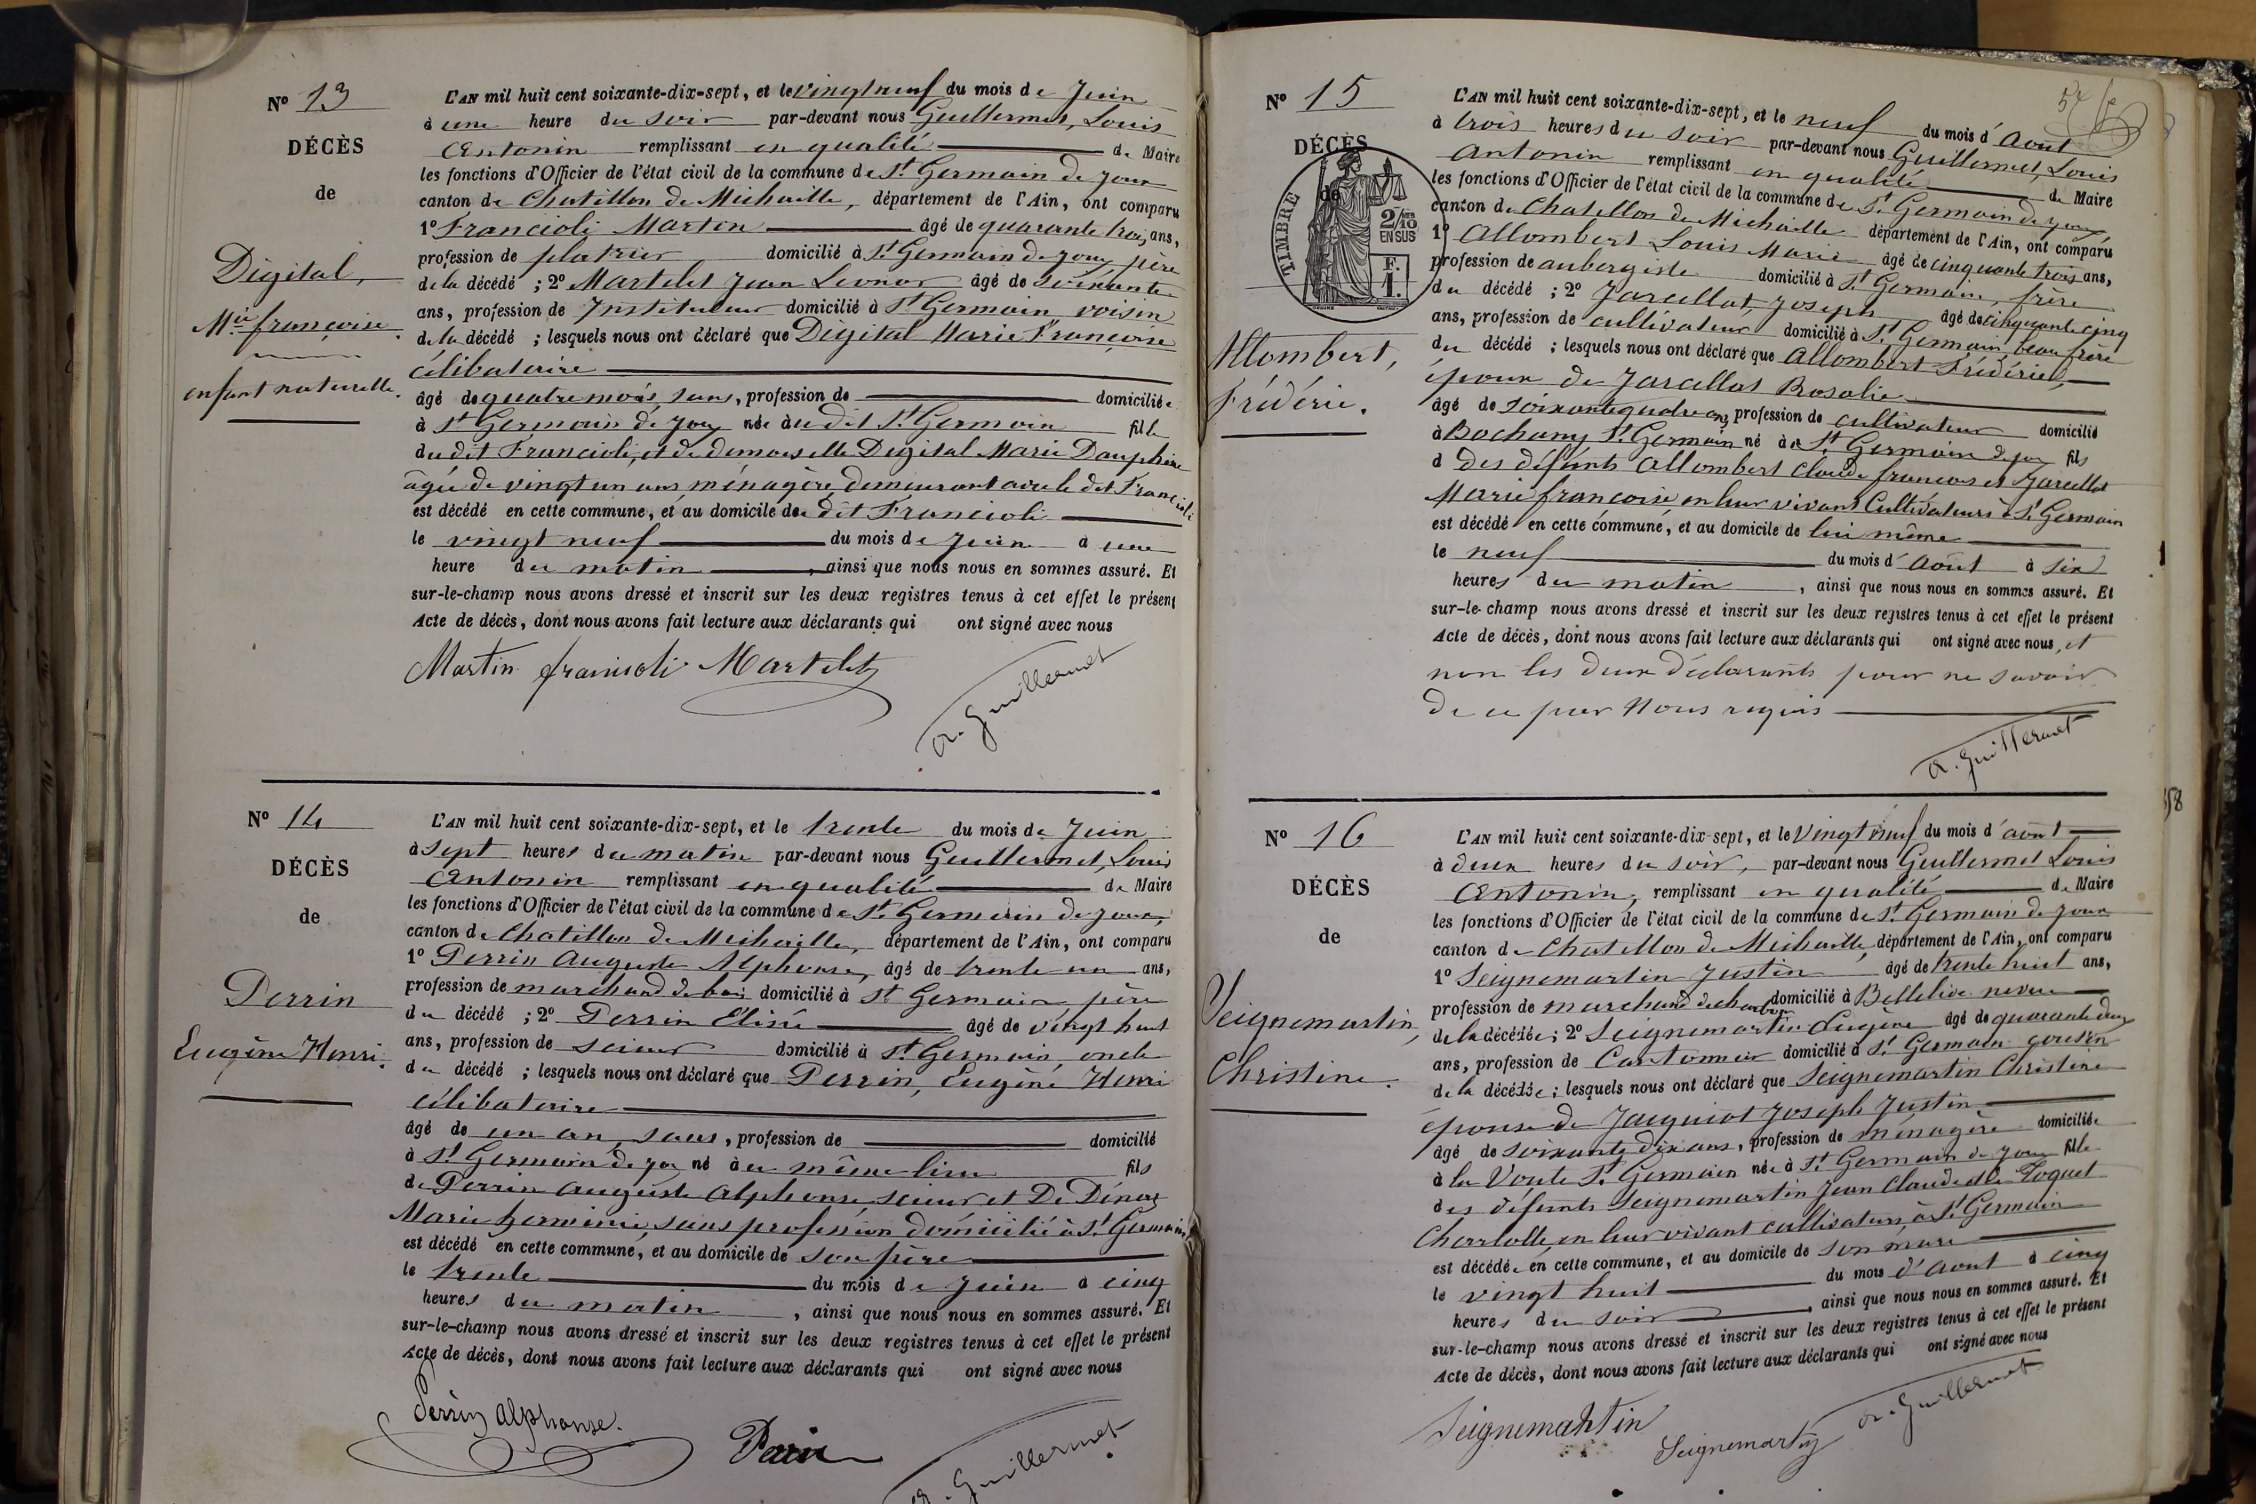 N° 13
DÉCÈS
de
Digital,
Mie françoise
enfant naturelle.
L'AN mil huit cent soixante-dix-sept, et le vingt neuf du mois de Juin
à une heure du soir par-devant nous Guillermet, Louis
Antonin remplissant en qualité de Maire
les fonctions d'Officier de l'état civil de la commune de St Germain de Joux
canton de Chatillon de Michaille, département de l'Ain, ont comparu
1° Francioli Martin âgé de quarante trois ans,
profession de platrier domicilié à St Germain de Joux père
de la décédé ; 2° Martelet Jean Leonor âgé de soixante
ans, profession de Instituteur domicilié à St Germain voisin
de la décédé ; lesquels nous ont déclaré que Digital Marie Françoise
célibataire
âgé de quatre mois, sans, profession de domicilié e
à St Germain de Joux née au dit St Germain fille
du dit Francioli, et de demoiselle Digital Marie Dauphine
âgée de vingt un ans ménagère, demeurant avec le dit Francioli
est décédé en cette commune, et au domicile du dit Francioli
le vingt neuf du mois de Juin à une
heure du matin, ainsi que nous nous en sommes assuré. Et
sur-le-champ nous avons dressé et inscrit sur les deux registres tenus à cet effet le présent
Acte de décès, dont nous avons fait lecture aux déclarants qui ont signé avec nous
Martin francioli Martelet
a. Guillermet
N° 14
DÉCÈS
de
Perrin
Eugène Henri.
L'AN mil huit cent soixante-dix-sept, et le trente du mois de Juin
à sept heures du matin par-devant nous Guillermet, Louis
Antonin remplissant en qualité de Maire
les fonctions d'Officier de l'état civil de la commune de St Germain de Joux,
canton de Chatillon de Michaille, département de l'Ain, ont comparu
1° Perrin Auguste Alphonse, âgé de trente un ans,
profession de marchand de bois domicilié à St Germain père
du décédé ; 2° Perrin Elisée âgé de vingt huit
ans, profession de scieur domicilié à St Germain, oncle
du décédé ; lesquels nous ont déclaré que Perrin, Eugène Henri
célibataire
âgé de un an, sans, profession de domicilié
à St Germain de Joux né à au même lieu fils
de Perrin Auguste Alphonse scieur et De Dénoz
Marie herminie, sans profession domicilié à St Germain,
est décédé en cette commune, et au domicile de son père
le trente du mois de Juin à cinq
heures du matin, ainsi que nous nous en sommes assuré. Et
sur-le-champ nous avons dressé et inscrit sur les deux registres tenus à cet effet le présent
Acte de décès, dont nous avons fait lecture aux déclarants qui ont signé avec nous
Perrin Alphonse.
Perrin
a. Guillermet
N° 15
DÉCÈS
de
TIMBRE
2/10
EN SUS
F.
1.
Allombert,
Frédéric.
L'AN mil huit cent soixante-dix-sept, et le neuf du mois d'Aout
à trois heures du soir par-devant nous Guillermet, Louis
Antonin remplissant en qualité de Maire
les fonctions d'Officier de l'état civil de la commune de St Germain de Joux,
canton de Chatillon de Michaille département de l'Ain, ont comparu
1° Allombert Louis Marie âgé de cinquante trois ans,
profession de aubergiste domicilié à St Germain, frère
du décédé ; 2° Jarcellat, Joseph âgé de cinquante cinq
ans, profession de cultivateur domicilié à St Germain, beau frère
du décédé ; lesquels nous ont déclaré que Allombert Frédéric,
époux de Jarcellat Rosalie
âgé de soixante quatre ans, profession de cultivateur domicilié
à Bochany St Germain né à St Germain de Joux fils
d des défunts Allombert Claude françois et Jarcellat
Marie françoise en leur vivant Cultivateurs à St Germain
est décédé en cette commune, et au domicile de lui même
le neuf du mois d'août à six
heures du matin, ainsi que nous nous en sommes assuré. Et
sur-le-champ nous avons dressé et inscrit sur les deux registres tenus à cet effet le présent
Acte de décès, dont nous avons fait lecture aux déclarants qui ont signé avec nous, et
non les deux déclarants pour ne savoir
de ce par Nous requis
a. Guillermet
N° 16
DÉCÈS
de
Seignemartin,
Christine.
L'AN mil huit cent soixante-dix-sept, et le vingt neuf du mois d'aout
à deux heures du soir, par-devant nous Guillermet Louis
Antonin, remplissant en qualité de Maire
les fonctions d'Officier de l'état civil de la commune de St Germain de Joux
canton de Chatillon de Michaille, département de l'Ain, ont comparu
1° Seignemartin Justin âgé de trente huit ans,
profession de marchand de charbon domicilié à Bellelive neveu
de la décédée ; 2° Seignemartin Eugène âgé de quarante deux
ans, profession de Cantonnier domicilié à St Germain cousin
de la décédée ; lesquels nous ont déclaré que Seignemartin Christine
épouse de Jacquiot Joseph Justin
âgé de soixante dix ans, profession de ménagère domiciliée
à la Voute St Germain née à St Germain de Joux fille
des défunts Seignemartin Jean Claude et de Poquet
Charlotte, en leur vivant cultivateurs à St Germain
est décédée en cette commune, et au domicile de son mari
le vingt huit du mois d'aout à cinq
heures du soir, ainsi que nous nous en sommes assuré. Et
sur-le-champ nous avons dressé et inscrit sur les deux registres tenus à cet effet le présent
Acte de décès, dont nous avons fait lecture aux déclarants qui ont signé avec nous
Seignemartin
Seignemartin
a. Guillermet